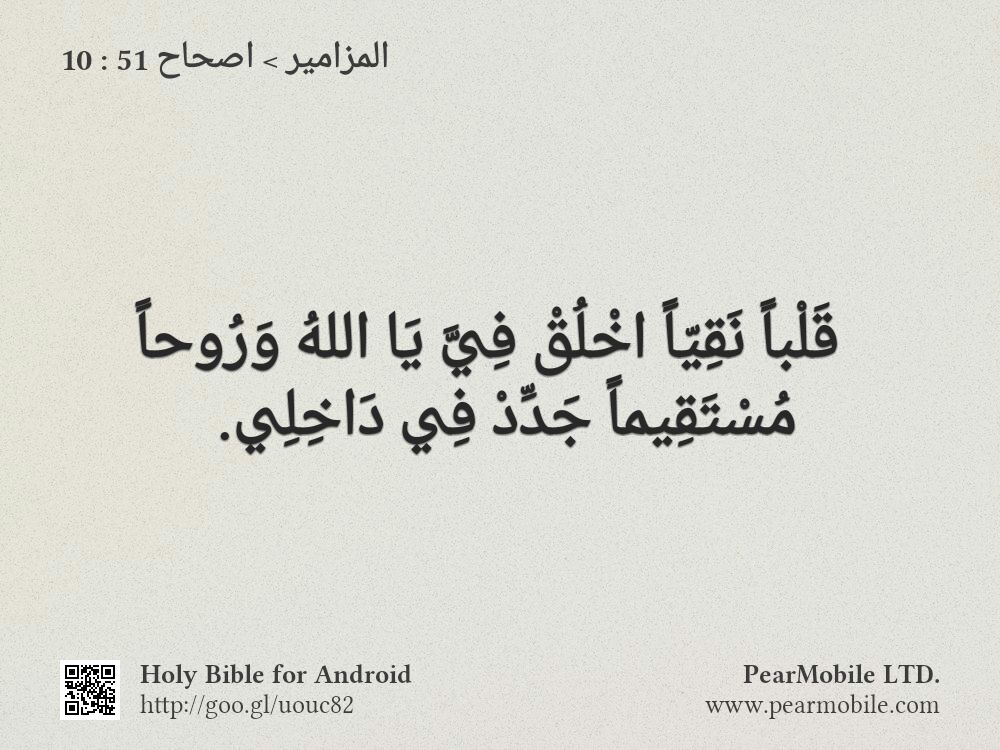 المزامير > اصحاح 51 : 10
قَلْباً نَقِيّاً اخْلُقْ فِيَّ يَا اللهُ وَرُوحاً
مُسْتَقِيماً جَدِّدْ فِي دَاخِلِي.
Holy Bible for Android
http://goo.gl/uouc82
PearMobile LTD.
www.pearmobile.com